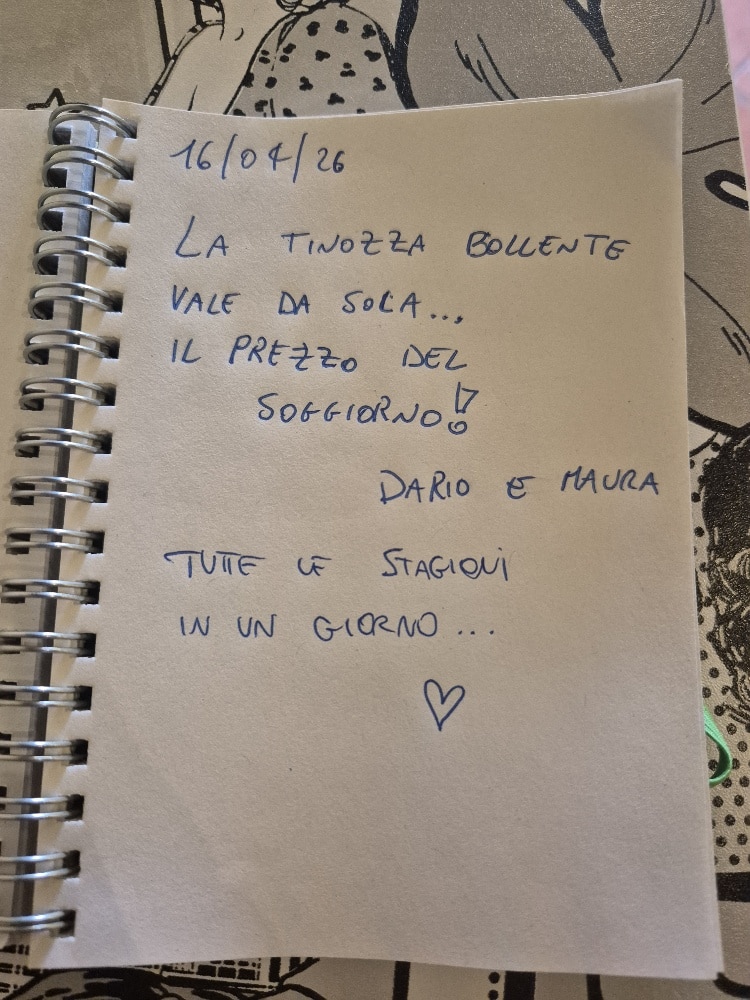 16/04/26
LA TINOZZA BOLLENTE
VALE DA SOLA...
IL PREZZO DEL
SOGGIORNO!
DARIO E MAURA
TUTTE LE STAGIONI
IN UN GIORNO...